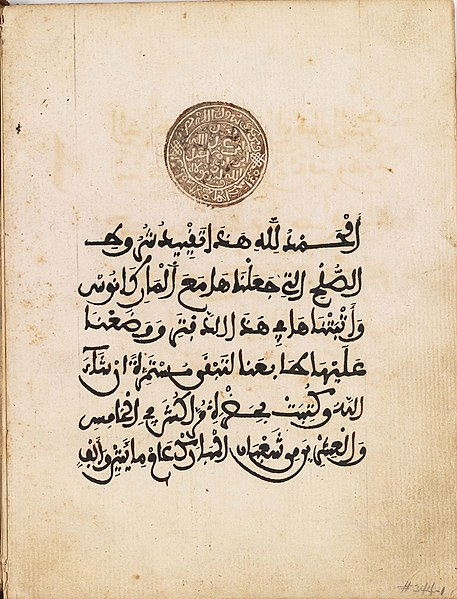 الْحَمْدُ لِلّه هَذَا تَقْيِيد شُرُوط
الصُّلْح التي جَعَلْنَاهَا مَعَ ٱلْمَارِكَانُوس
وَأَثْبَتْنَاهَا في هَذَا الدَّفْتَرِ وَوَضَعْنَا
عَلَيْهَا طَابَعَنَا لِتَبْقَى مُسْتَمِرَّةً إن شَاءَ
اللَّه وَكُتِبَتْ بِحَضْرَةِ مُرَّاكُش في الْخَامِس
وَالْعِشْرِين مِن شَعْبَان الْمُبَارَك عَام مِايتَيْن وَأَلْف
#244-1